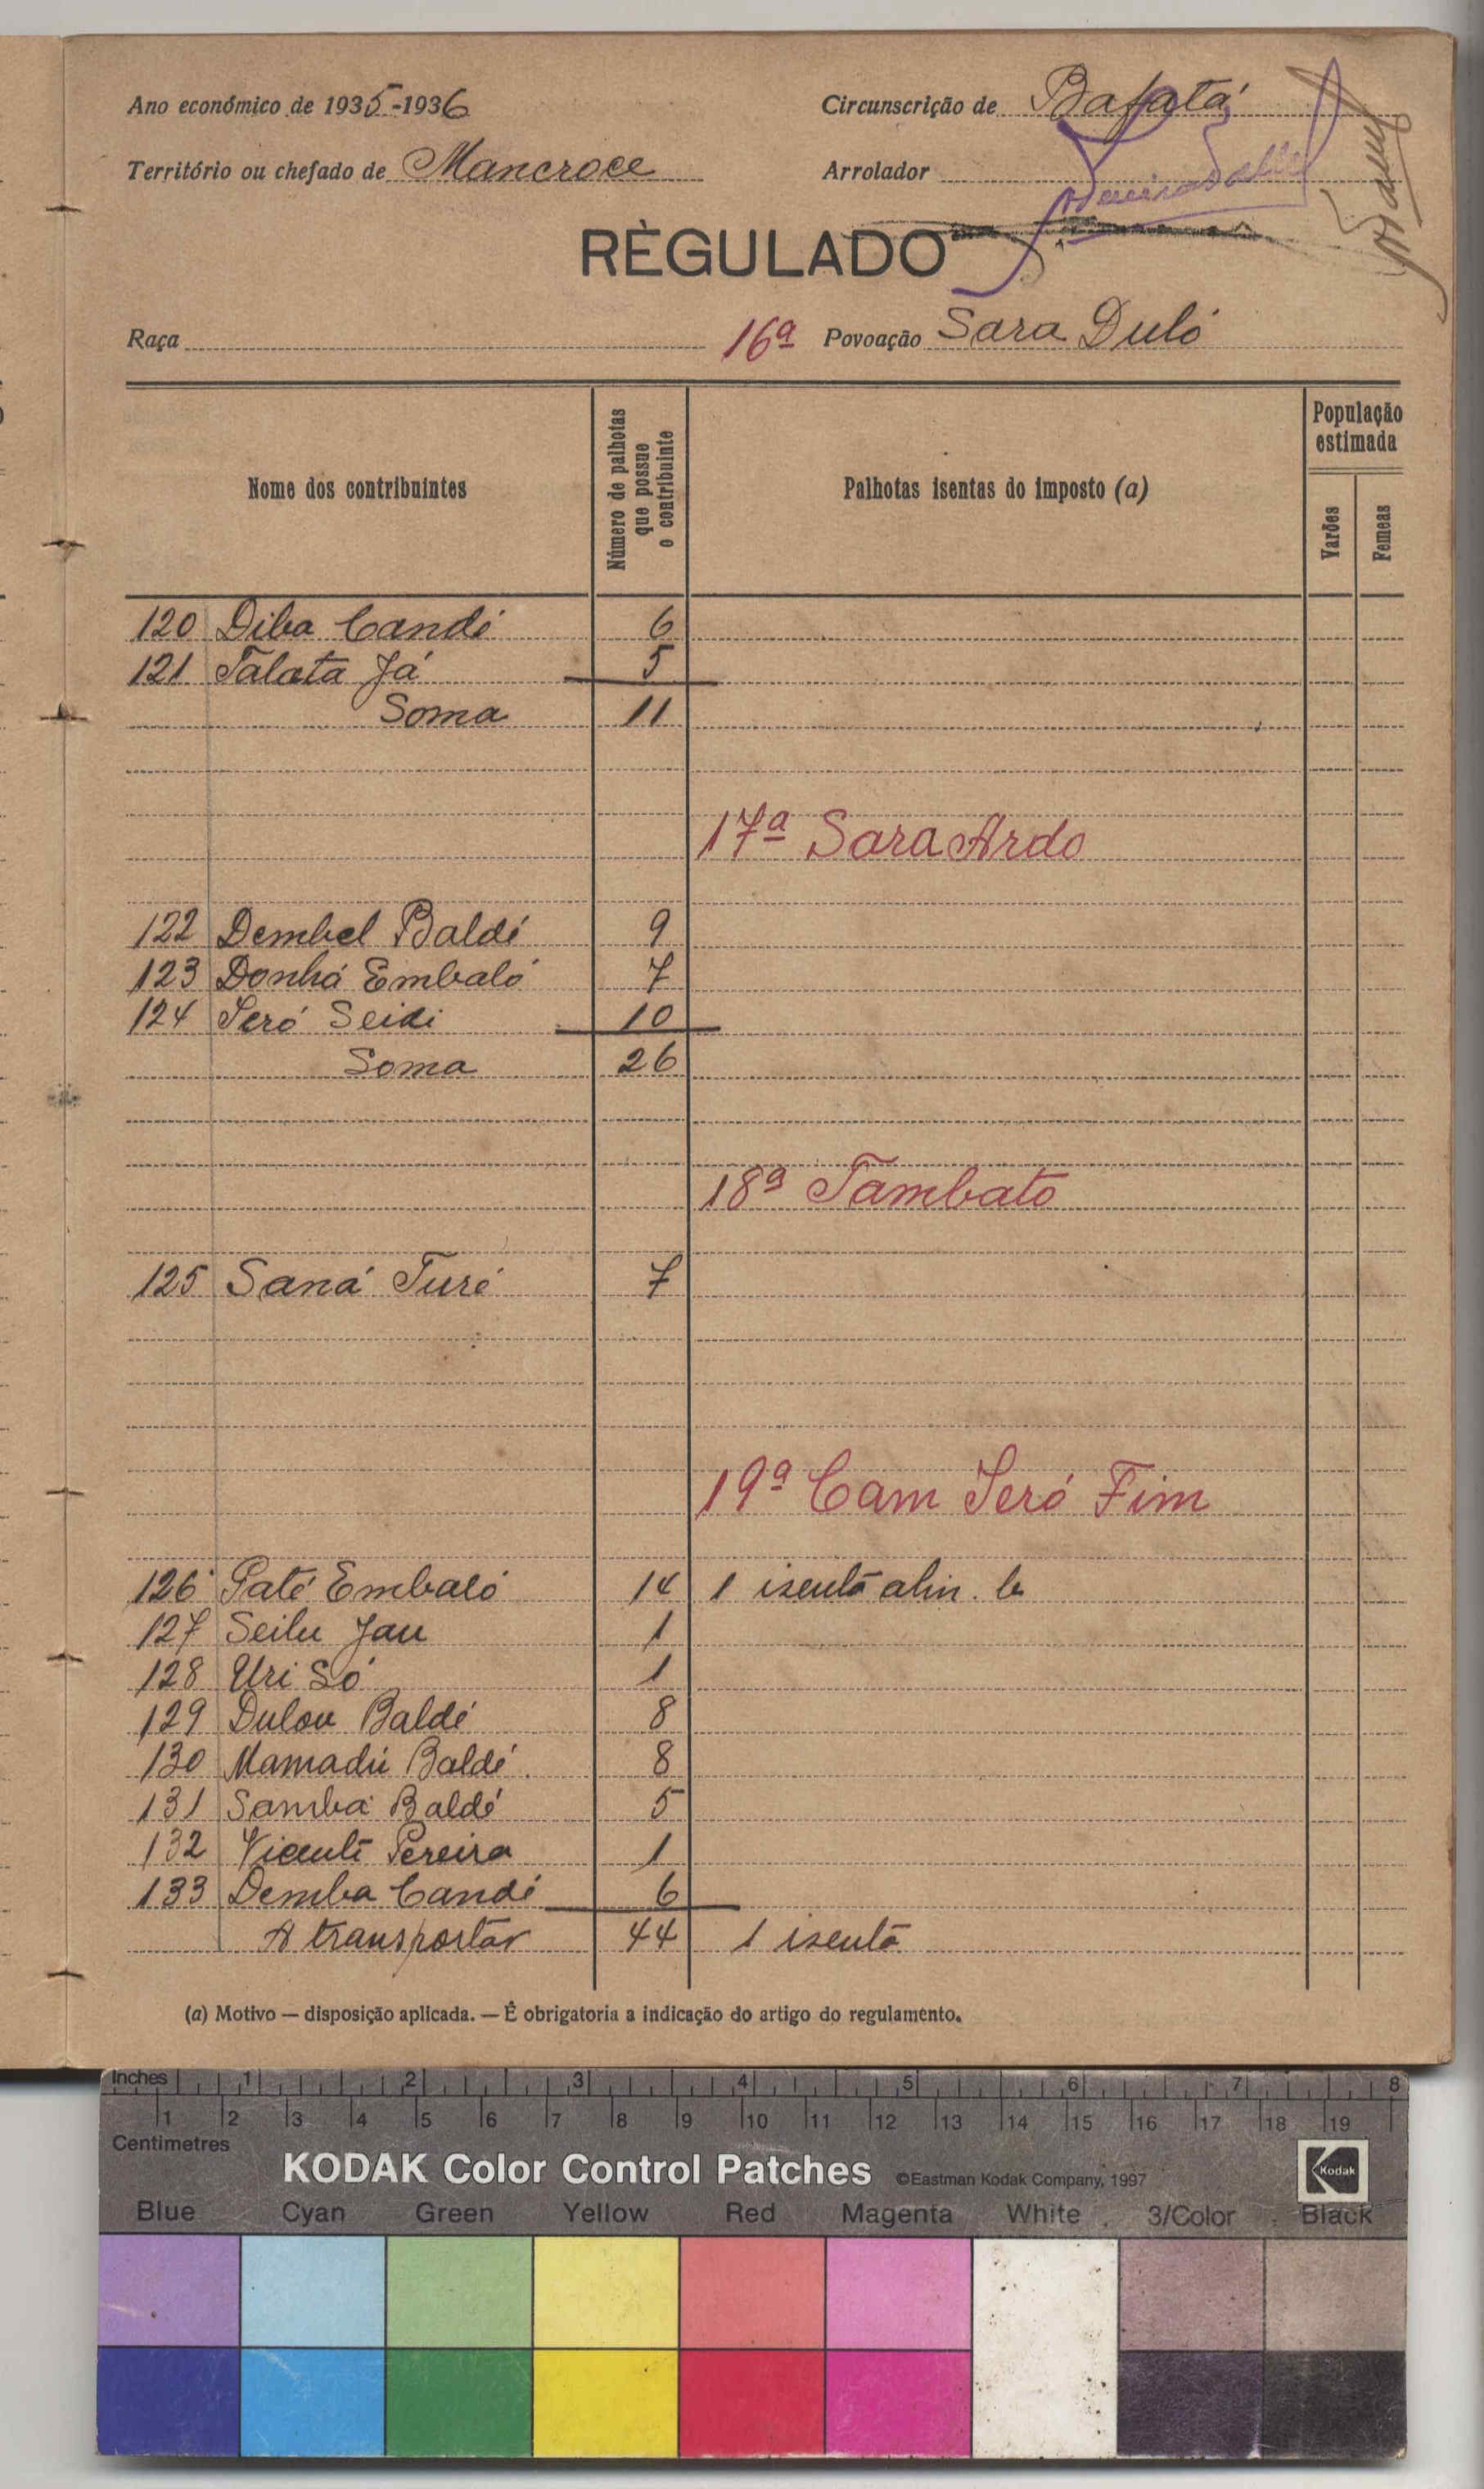 Ano económico de 1935-1936
Circunscrição de Bafatá
Território ou chefado de Mancroce
Arrolador
RÈGULADO
Raça
16ª Povoação Sara Duló
Nome dos contribuintes
Número de palhotas que possue o contribuinte
Palhotas isentas do imposto (a)
População estimada
Varões
Femeas
120 Diba Candé 6
121 Talata Já 5
Soma 11
17ª Sara Ardo
122 Dembel Baldé 9
123 Donhá Embaló 7
124 Seró Seidi 10
Soma 26
18ª Tambato
125 Saná Turé 7
19ª Cam Seró Fim
126 Paté Embaló 14 1 isenta alin. b
127 Seilu Jau 1
128 Uri Só 1
129 Dulou Baldé 8
130 Mamadú Baldé 8
131 Samba Baldé 5
132 Vicente Pereira 1
133 Demba Candé 6
A transportar 44 1 isenta
(a) Motivo — disposição aplicada. — É obrigatoria a indicação do artigo do regulamento.
Inches 1 2 3 4 5 6 7 8
1 2 3 4 5 6 7 8 9 10 11 12 13 14 15 16 17 18 19
Centimetres
KODAK Color Control Patches ©Eastman Kodak Company, 1997 Kodak
Blue Cyan Green Yellow Red Magenta White 3/Color Black